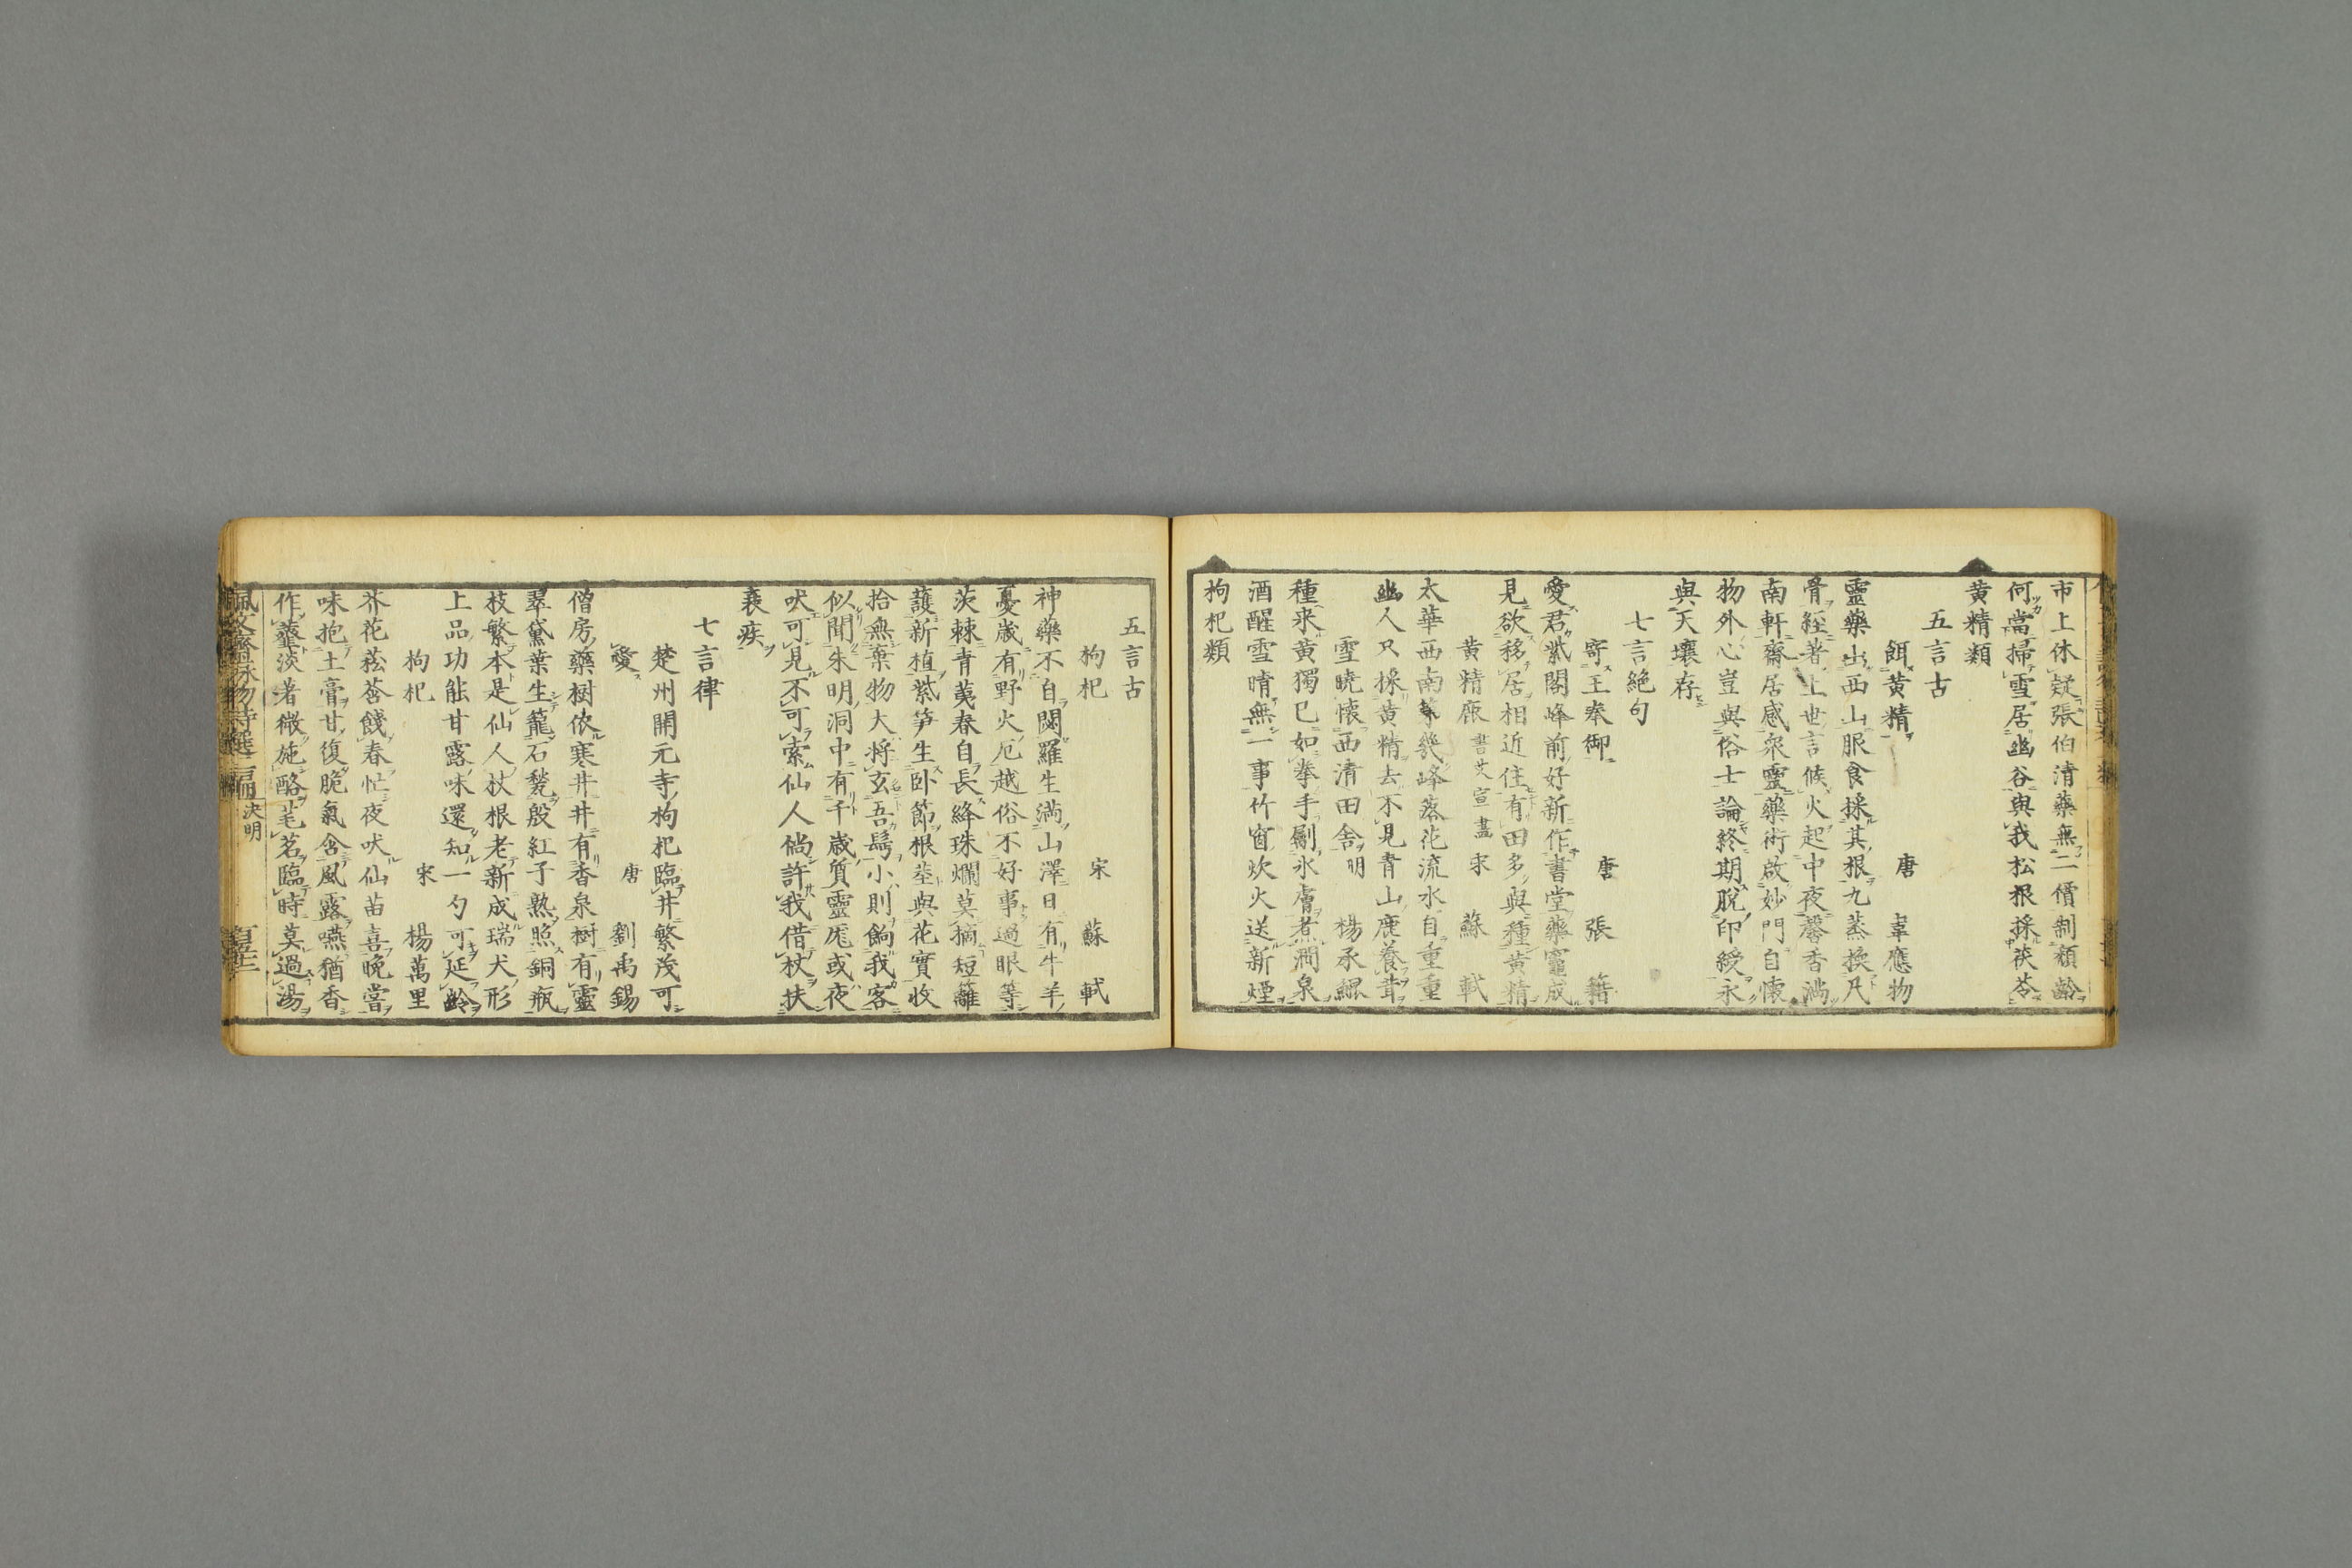 市上休疑張伯清藥無二價制頽齡
何當掃雪居幽谷與我松根採茯苓
黄精類
五言古
餌黄精 唐 韋應物
靈藥出西山服食採其根九蒸換凡
骨經著上世言候火起中夜馨香満
南軒齋居感衆靈藥術啟妙門自懐
物外心豈與俗士論終期脱印綬永
與天壤存
七言絶句
寄王奉御 唐 張籍
愛君紫閣峰前好新作書堂藥竈成
見欲移居相近住有田多與種黄精
黄精鹿 書艾宣畫 宋 蘇軾
太華西南第幾峰落花流水自重重
幽人只採黄精去不見青山鹿養茸
雪暁懐西清田舎 明 楊承鯤
種来黄獨已如拳手劚氷膚煮澗泉
酒醒雪晴無一事竹窗炊火送新煙
枸杞類
五言古
枸杞 宋 蘇軾
神藥不自閟羅生満山澤日有牛羊
憂歳有野火厄越俗不好事過眼等
茨棘青荑春自長絳珠爛莫摘短籬
護新植紫笋生卧節根莖與花實收
拾無棄物大将玄吾鬂小則餉我客
似聞朱明洞中有千歳質靈厖或夜
吠可見不可索仙人倘許我借杖扶
衰疾
七言律
楚州開元寺枸杞臨井繁茂可
愛 唐 劉禹錫
僧房藥樹依寒井井有香泉樹有靈
翠黛葉生籠石甃殷紅子熟照銅瓶
枝繁本是仙人杖根老新成瑞犬形
上品功能甘露味還知一勺可延齡
枸杞 宋 楊萬里
芥花菘䓤餞春忙夜吠仙苗喜晩嘗
味抱土膏甘復脆氣含風露嚥猶香
作虀淡著微施酪芼茗臨時莫過湯
佩文齋詠物詩選二編 決明